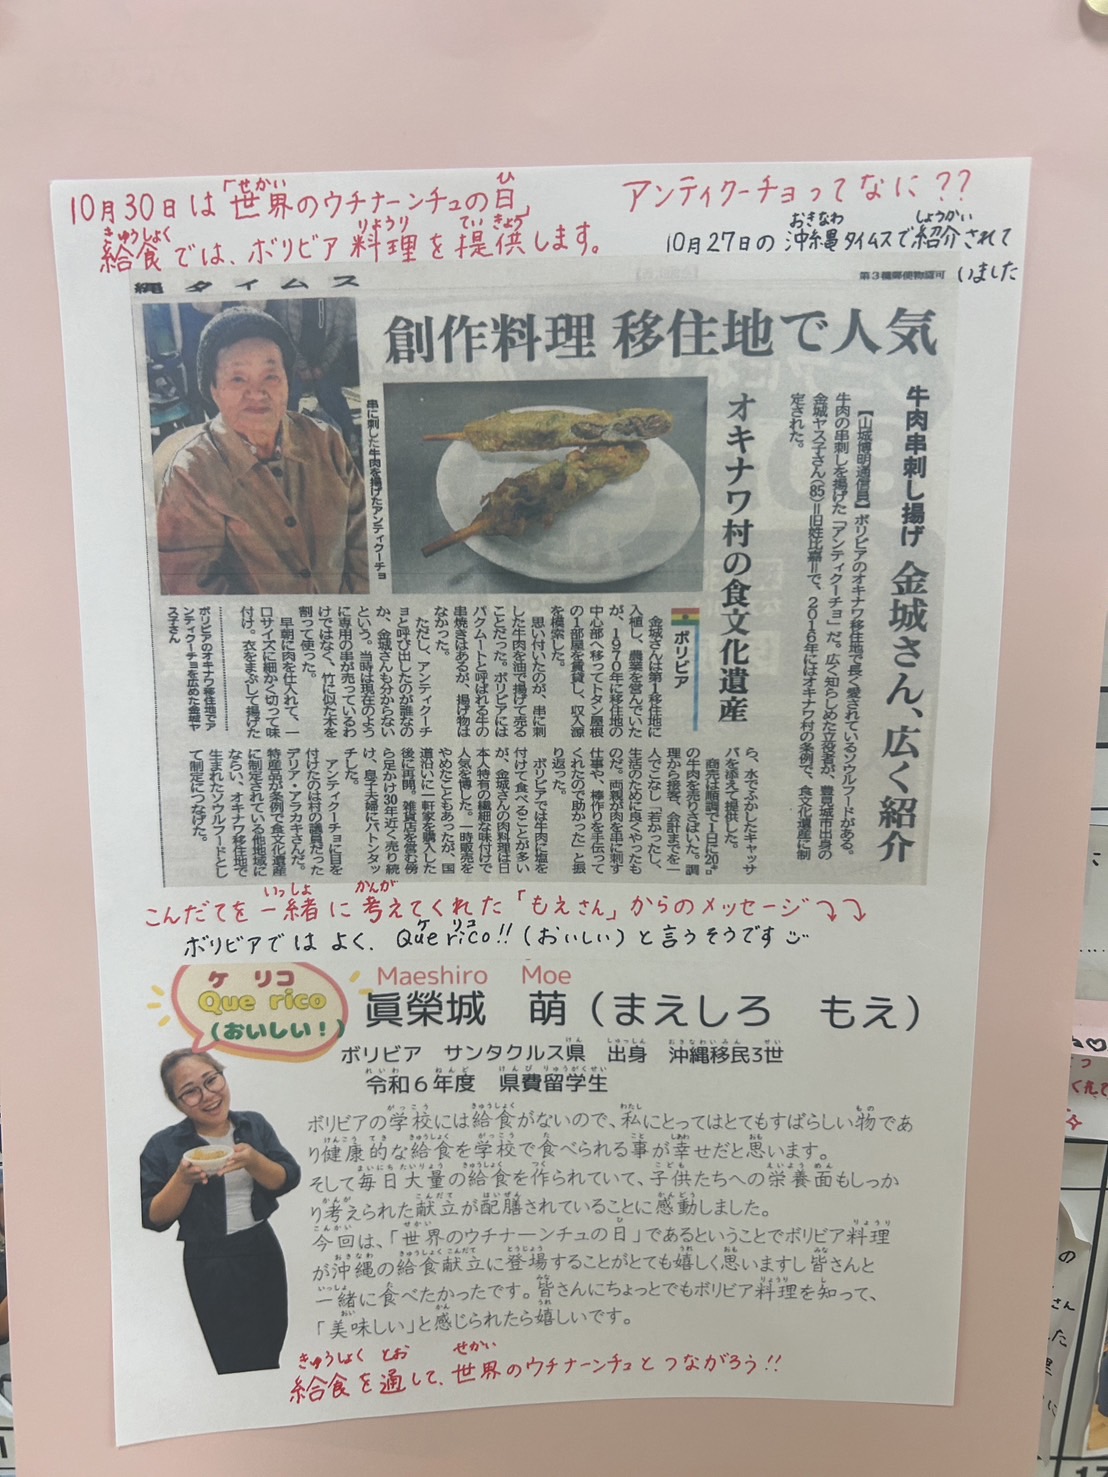 10月30日は「世界のウチナーンチュの日」
給食では、ボリビア料理を提供します。
アンティクーチョってなに??
10月27日の沖縄タイムスで紹介されて
いました
縄タイムス
第3種郵便物認可
創作料理 移住地で人気
牛肉串刺し揚げ 金城さん、広く紹介
オキナワ村の食文化遺産
【山城博明通信員】ボリビアのオキナワ移住地で長く愛されているソウルフードがある。
牛肉の串刺しを揚げた「アンティクーチョ」だ。広く知らしめた立役者が、豊見城市出身の
金城ヤス子さん(85)=旧姓比嘉=で、2016年にはオキナワ村の条例で、食文化遺産に制
定された。
串に刺した牛肉を揚げたアンティクーチョ
ボリビア
金城さんは第1移住地に
入植し、農業を営んでいた
が、1970年に移住地の
中心部へ移ってトタン屋根
の1部屋を賃貸し、収入源
を模索した。
思い付いたのが、串に刺
した牛肉を油で揚げて売る
ことだった。ボリビアには
パクムートと呼ばれる牛の
串焼きはあるが、揚げ物は
なかった。
ただし、アンティクーチ
ョと呼び出したのが誰なの
か、金城さんも分からない
という。当時は現在のよう
に専用の串が売っているわ
けではなく、竹に似た木を
割って使った。
早朝に肉を仕入れて、一
口サイズに細かく切って味
付け。衣をまぶして揚げた
ボリビアのオキナワ移住地でア
ンティクーチョを広めた金城ヤ
ス子さん
ら、水でふかしたキャッサ
バを添えて提供した。
商売は順調で1日に20㌔
の牛肉を売りさばいた。調
理から接客、会計までを一
人でこなし「若かったし、
生活のために良くやったも
のだ。両親が肉を串に刺す
仕事や、棒作りを手伝って
くれたので助かった」と振
り返った。
ボリビアでは牛肉に塩を
付けて食べることが多い
が、金城さんの肉料理は日
本人特有の繊細な味付けで
人気を博した。一時販売を
やめたこともあったが、国
道沿いに一軒家を購入した
後に再開。雑貨店を営む傍
ら足かけ30年近く売り続
け、息子夫婦にバトンタッ
チした。
アンティクーチョに目を
付けたのは村の議員だった
デリア・アラカキさんだ。
特産品が条例で食文化遺産
に制定されている他地域に
ならい、オキナワ移住地で
生まれたソウルフードとし
て制定につなげた。
こんだてを一緒に考えてくれた「もえさん」からのメッセージ⤵⤵
ボリビアではよく、Que rico!!(おいしい)と言うそうです
ケ リコ
Que rico
(おいしい!)
Maeshiro Moe
眞榮城 萌(まえしろ もえ)
ボリビア サンタクルス県 出身 沖縄移民3世
令和6年度 県費留学生
ボリビアの学校には給食がないので、私にとってはとてもすばらしい物であ
り健康的な給食を学校で食べられる事が幸せだと思います。
そして毎日大量の給食を作られていて、子供たちへの栄養面もしっか
り考えられた献立が配膳されていることに感動しました。
今回は、「世界のウチナーンチュの日」であるということでボリビア料理
が沖縄の給食献立に登場することがとても嬉しく思いますし皆さんと
一緒に食べたかったです。皆さんにちょっとでもボリビア料理を知って、
「美味しい」と感じられたら嬉しいです。
給食を通して、世界のウチナーンチュとつながろう!!